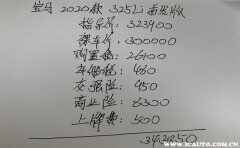 宝马 2020款 325Li 首发版
指导价: 323900
裸车价: 300000
购置税: 26400
车船税: 460
交强险: 950
商业险: 6300
上牌费: 500
334250
WWW.XCAUTO.COM.CN